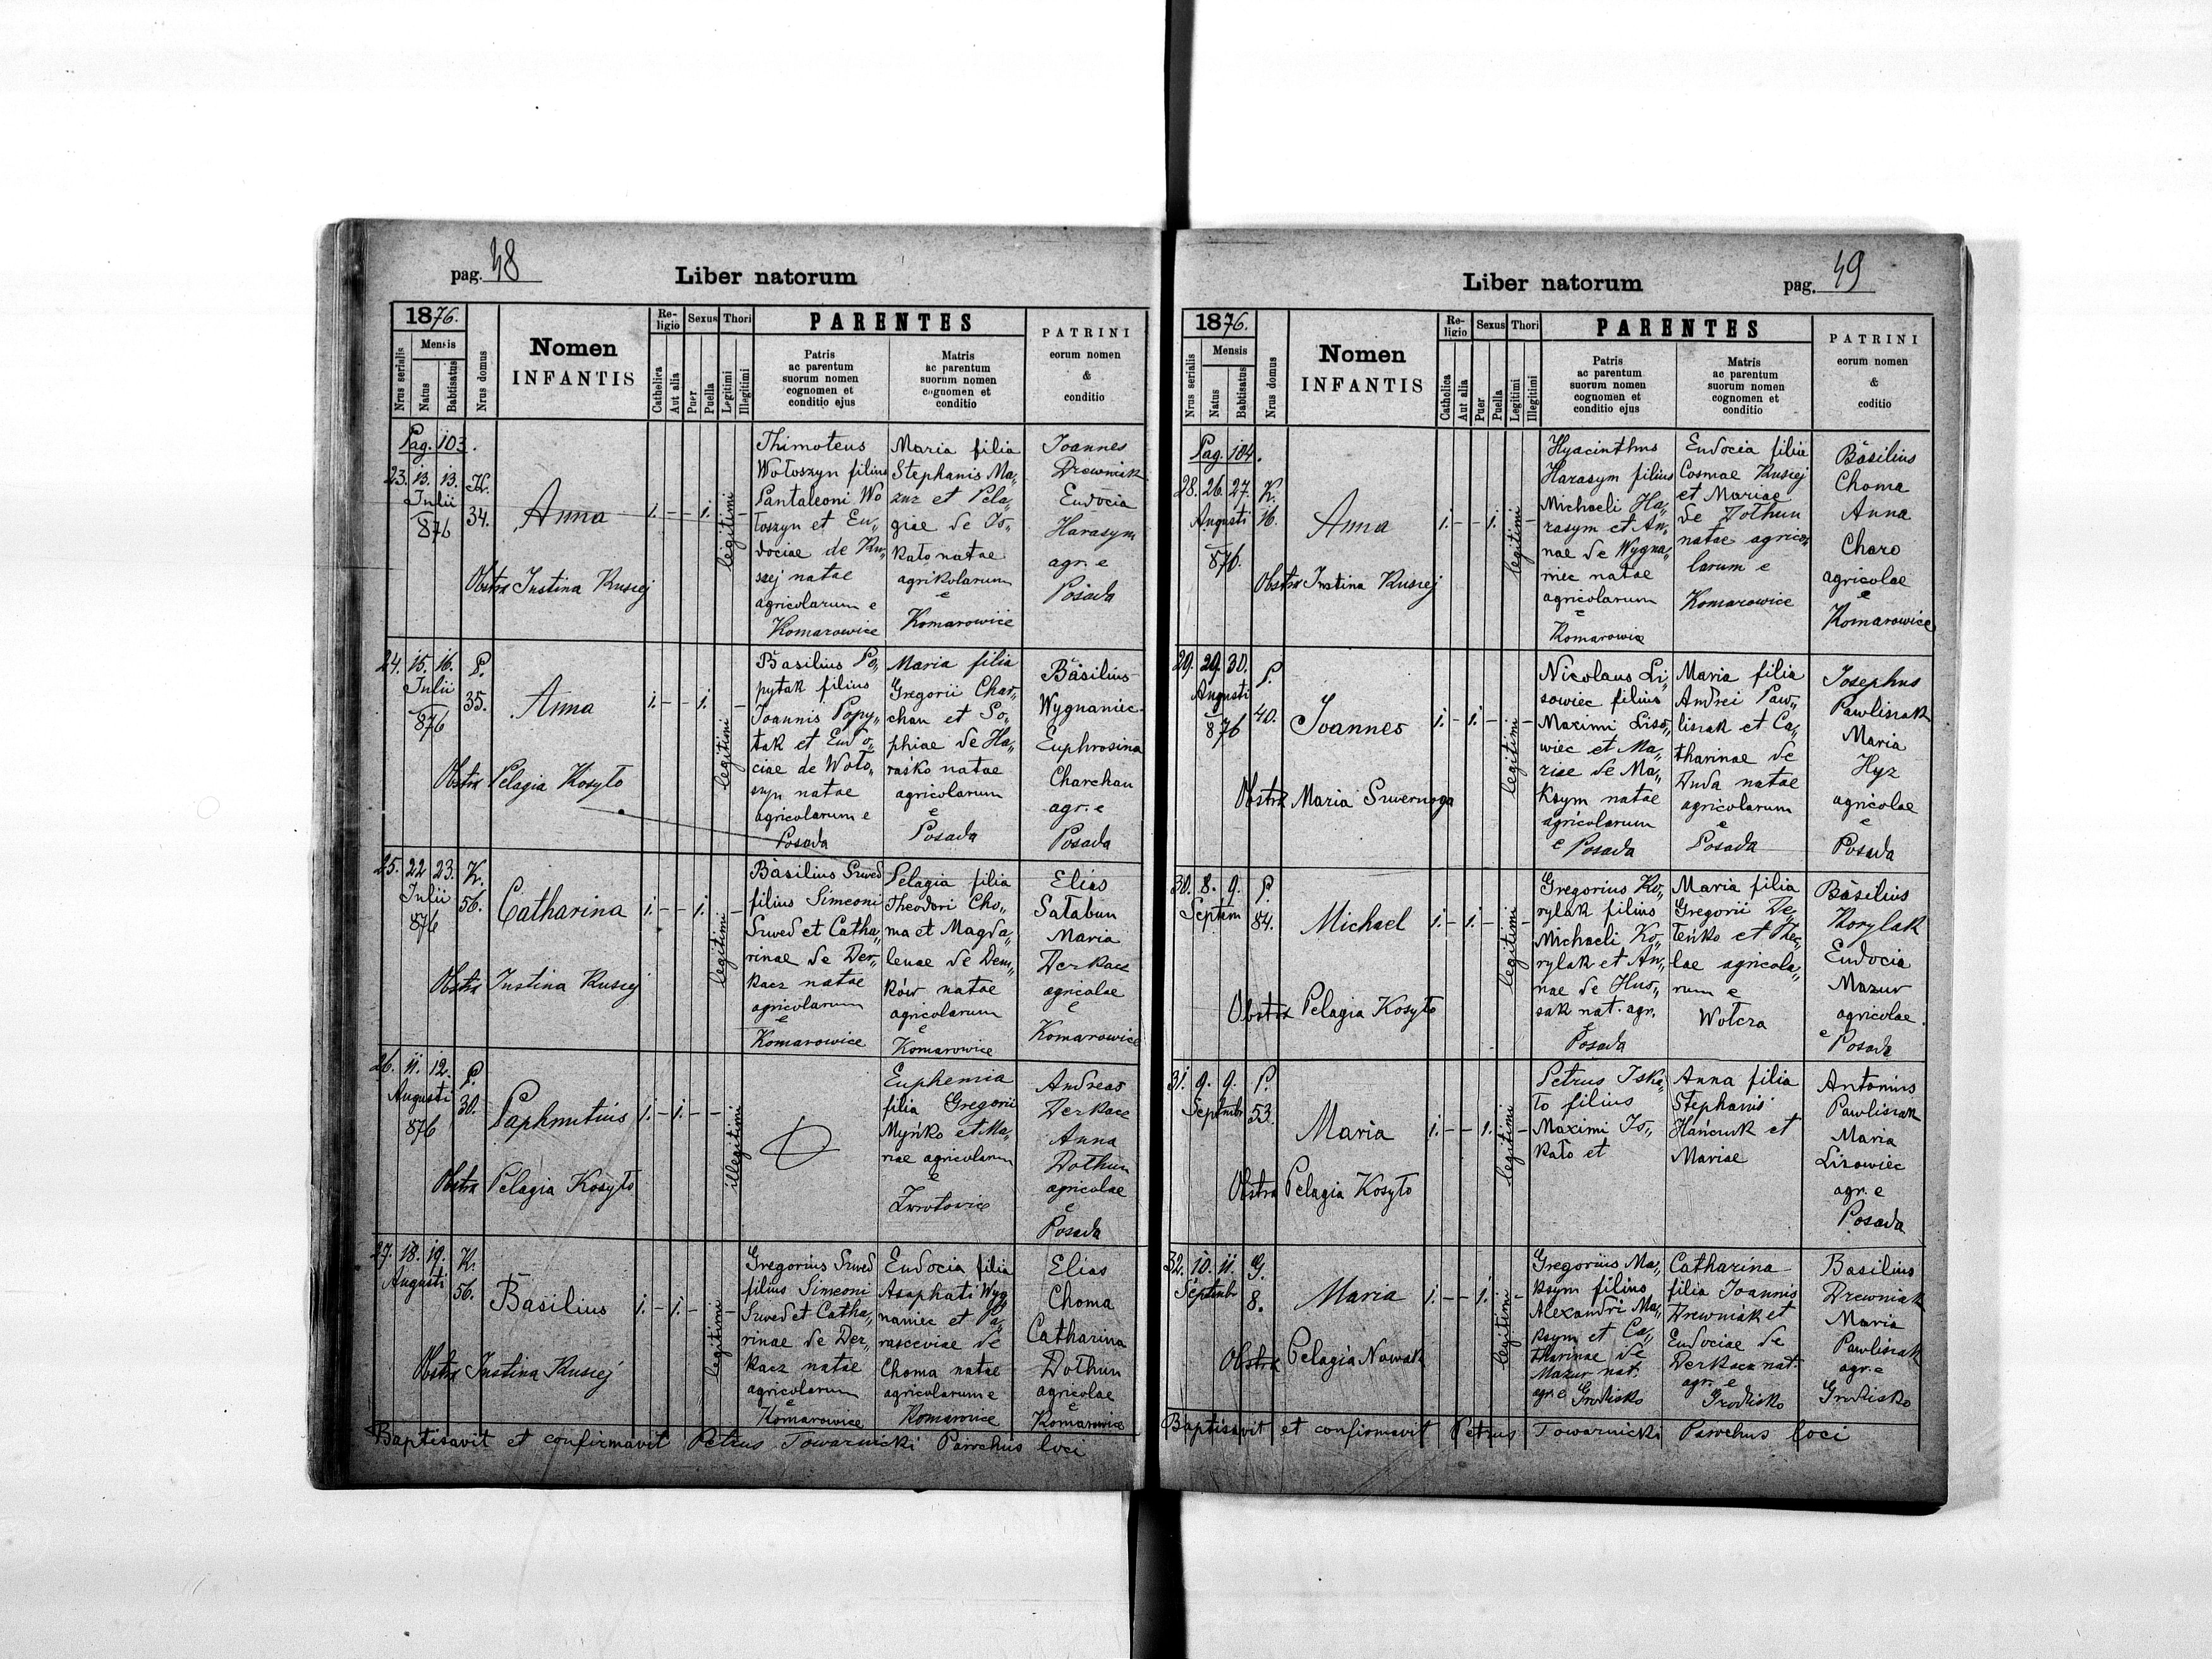 pag. 48
Liber natorum
1876.
Mensis
Nrus serialis
Natus
Babtisatus
Nrus domus
Nomen
INFANTIS
Religio
Catholica
Aut alia
Sexus
Puer
Puella
Thori
Legitimi
Illegitimi
PARENTES
Patris
ac parentum
suorum nomen
cognomen et
conditio ejus
Matris
ac parentum
suorum nomen
cognomen et
conditio
PATRINI
eorum nomen
&
conditio
Pag. 103.
23. 13. 13. K.
Julii
876
34.
Anna
1. - - 1. legitimi -
Obstrx Justina Kusiej
Thimoteus
Wołoszyn filius
Pantaleoni Wo
łoszyn et Eu„
dociae de Ku„
siej natae
agricolarum e
Komarowice
Maria filia
Stephanis Ma„
zur et Pela„
giae de Is„
kało natae
agrikolarum
e
Komarowice
Joannes
Drewniak
Eudocia
Harasym
agr. e
Posada
24. 15. 16. P.
Julii
876
35.
Anna
1. - - 1. legitimi -
Obstrx Pelagia Kosyło
Basilius Po„
pytak filius
Joannis Popy„
tak et Eudo„
ciae de Woło„
szyn natae
agricolarum e
Posada
Maria filia
Gregorii Char„
chan et So„
phiae de Ha„
raśko natae
agricolarum
e
Posada
Basilius
Wygnaniec
Euphrosina
Charchan
agr. e
Posada
25. 22 23. K.
Julii
876
56.
Catharina
1. - - 1. legitimi -
Obstrx Justina Kusiej
Basilius Szwed
filius Simeoni
Szwed et Catha„
rinae de Der„
kacz natae
agricolarum
e
Komarowice
Pelagia filia
Theodori Cho„
ma et Magda„
lenae de Dem„
ków natae
agricolarum
e
Komarowice
Elias
Sałabun
Maria
Derkacz
agricolae
e
Komarowice
26. 11. 12. P.
Augusti
876
30.
Paphnutius
1. - 1. - - illegitimi
Obstrx Pelagia Kosyło
Euphemia
filia Gregorii
Myńko et Ma„
riae agricolarum
e
Andreas
Derkacz
Anna
Dothun
agricolae
e
Posada
27. 18. 19. K.
Augusti
56.
Basilius
1. - 1. - legitimi -
Obstrx Justina Kusiej
Gregorius Szwed
filius Simeoni
Szwed et Catha„
rinae de Der„
kacz natae
agricolarum
e
Komarowice
Eudocia filia
Asaphati Wyg
naniec et Pa„
rasceviae de
Choma natae
agricolarum e
Komarowice
Elias
Choma
Catharina
Dothun
agricolae
e
Komarowice
Baptisavit et confirmavit Petrus Towarnicki Parochus loci
Liber natorum
pag. 49
1876.
Mensis
Nrus serialis
Natus
Babtisatus
Nrus domus
Nomen
INFANTIS
Religio
Catholica
Aut alia
Sexus
Puer
Puella
Thori
Legitimi
Illegitimi
PARENTES
Patris
ac parentum
suorum nomen
cognomen et
conditio ejus
Matris
ac parentum
suorum nomen
cognomen et
conditio
PATRINI
eorum nomen
&
coditio
Pag. 104.
28. 26. 27. K.
Augusti
876.
16.
Anna
1. - - 1. legitimi -
Obstrx Justina Kusiej
Hyacinthus
Harasym filius
Michaeli Ha„
rasym et An„
nae de Wygna„
niec natae
agricolarum
e
Komarowice
Eudocia filia
Cosmae Kusiej
et Mariae
de Dothun
natae agrico„
larum e
Komarowice
Basilius
Choma
Anna
Charo
agricolae
e
Komarowice
29. 29. 30. P.
Augusti
876
40.
Joannes
1. - 1. - legitimi -
Obstrx Maria
Nicolaus Li„
sowiec filius
Maximi Liso„
wiec et Ma„
riae de Ma„
ksym natae
agricolarum
e Posada
Maria filia
Andrei Paw„
lisiak et Ca„
tharinae de
Duda natae
agricolarum
e
Posada
Josephus
Pawlisiak
Maria
Hyz
agricolae
e
Posada
30. 8. 9. P.
Septem
84.
Michael
1. - 1. - legitimi -
Obstrx Pelagia Kosyło
Gregorius Ko„
rylak filius
Michaeli Ko„
rylak et An„
nae de Hus„
sak nat. agr.
e
Posada
Maria filia
Gregorii De„
leńko et The„
lae agricola„
rum e
Wołcza
Basilius
Korylak
Eudocia
Mazur
agricolae
e Posada
31. 9. 9. P.
Septmbr
53.
Maria
1. - - 1. legitimi -
Obstrx Pelagia Kosyło
Petrus Iska„
ło filius
Maximi Is„
kało et
Anna filia
Stephanis
Hańczuk et
Mariae
Antonius
Pawlisiak
Maria
Lisowiec
agr. e
Posada
32. 10. 11. G.
Septmbr
8.
Maria
1. - - 1. legitimi -
Obstrx Pelagia Nowak
Gregorius Ma„
ksym filius
Alexandri Ma„
ksym et Ca„
tharinae de
Mazur nat.
agr. e Grodisko
Catharina
filia Joannis
Drewniak et
Eudociae de
Derkacz nat.
agr. e
Grodisko
Basilius
Drewniak
Maria
Pawlisiak
agr. e
Grodisko
Baptisavit et confirmavit Petrus Towarnicki Parochus loci